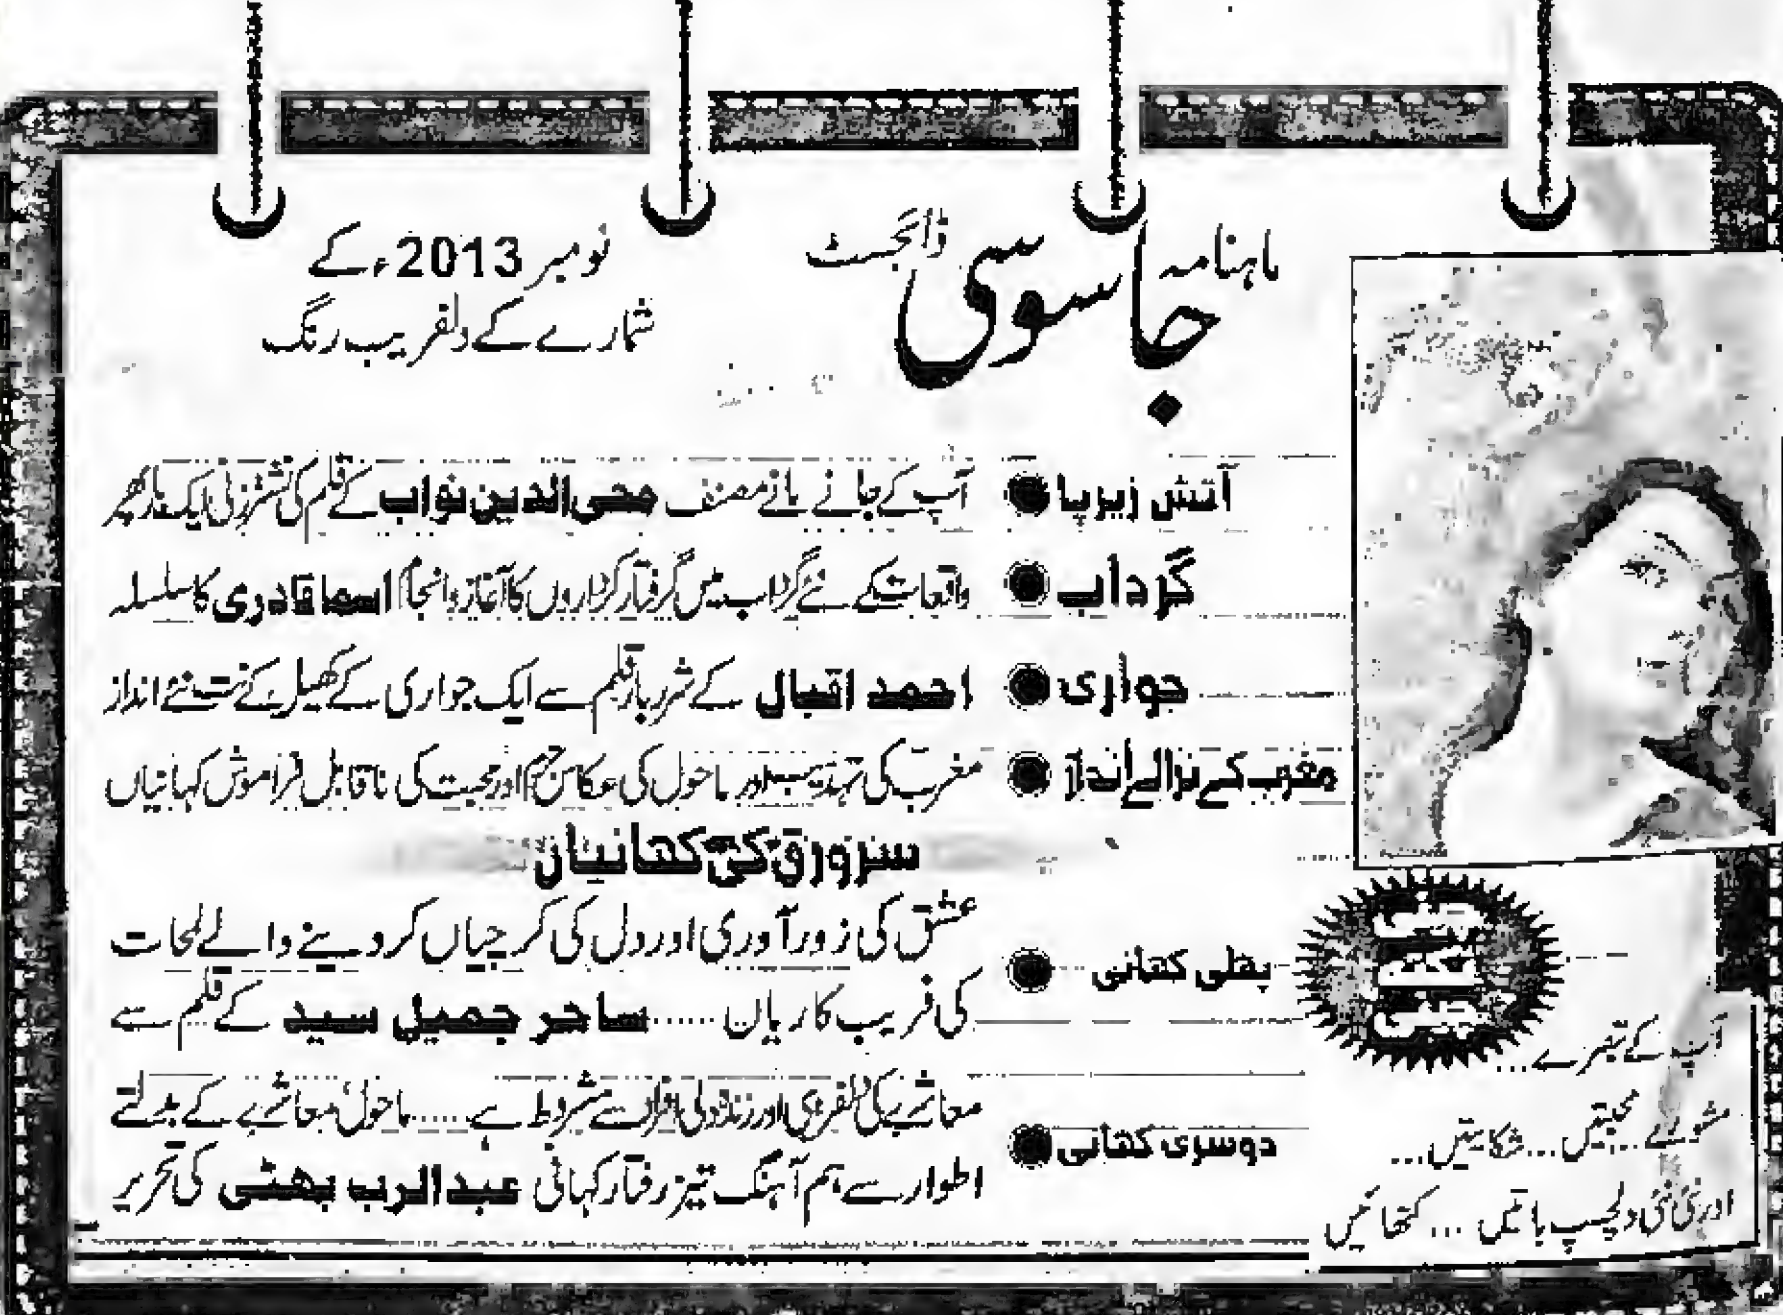 ماہنامہ جاسوسی ڈائجسٹ
نومبر 2013ء کے
شمارے کے دلفریب رنگ
آتش زیرپا ● آپ کے جانے مانے مصنف محی الدین نواب کے قلم کی نشتر زنی ایک بار پھر
گرداب ● واقعات کے نئے گرداب میں گرفتار کرداروں کا آغاز و انجام اسما قادری کا سلسلہ
جواری ● احمد اقبال کے شرربار قلم سے ایک جواری کے کھیل کے نت نئے انداز
مغرب کے نرالے انداز ● مغرب کی تہذیب اور ماحول کی عکاس جرم اور محبت کی ناقابل فراموش کہانیاں
سرورق کی کہانیاں
پہلی کہانی ● عشق کی زور آوری اور دل کی کرچیاں کر دینے والے لمحات
کی فریب کاریاں ...... ساحر جمیل سید کے قلم سے
دوسری کہانی ● معاشرے کی دلفریبی اور زندہ دلی افراد سے مشروط ہے ..... ماحول، معاشرے کے بدلتے
اطوار سے ہم آہنگ تیز رفتار کہانی عبدالرب بھٹی کی تحریر
آپ کے تبصرے...
مشورے... محبتیں... شکایتیں...
اور نئی نئی دلچسپ باتیں ... کتھائیں